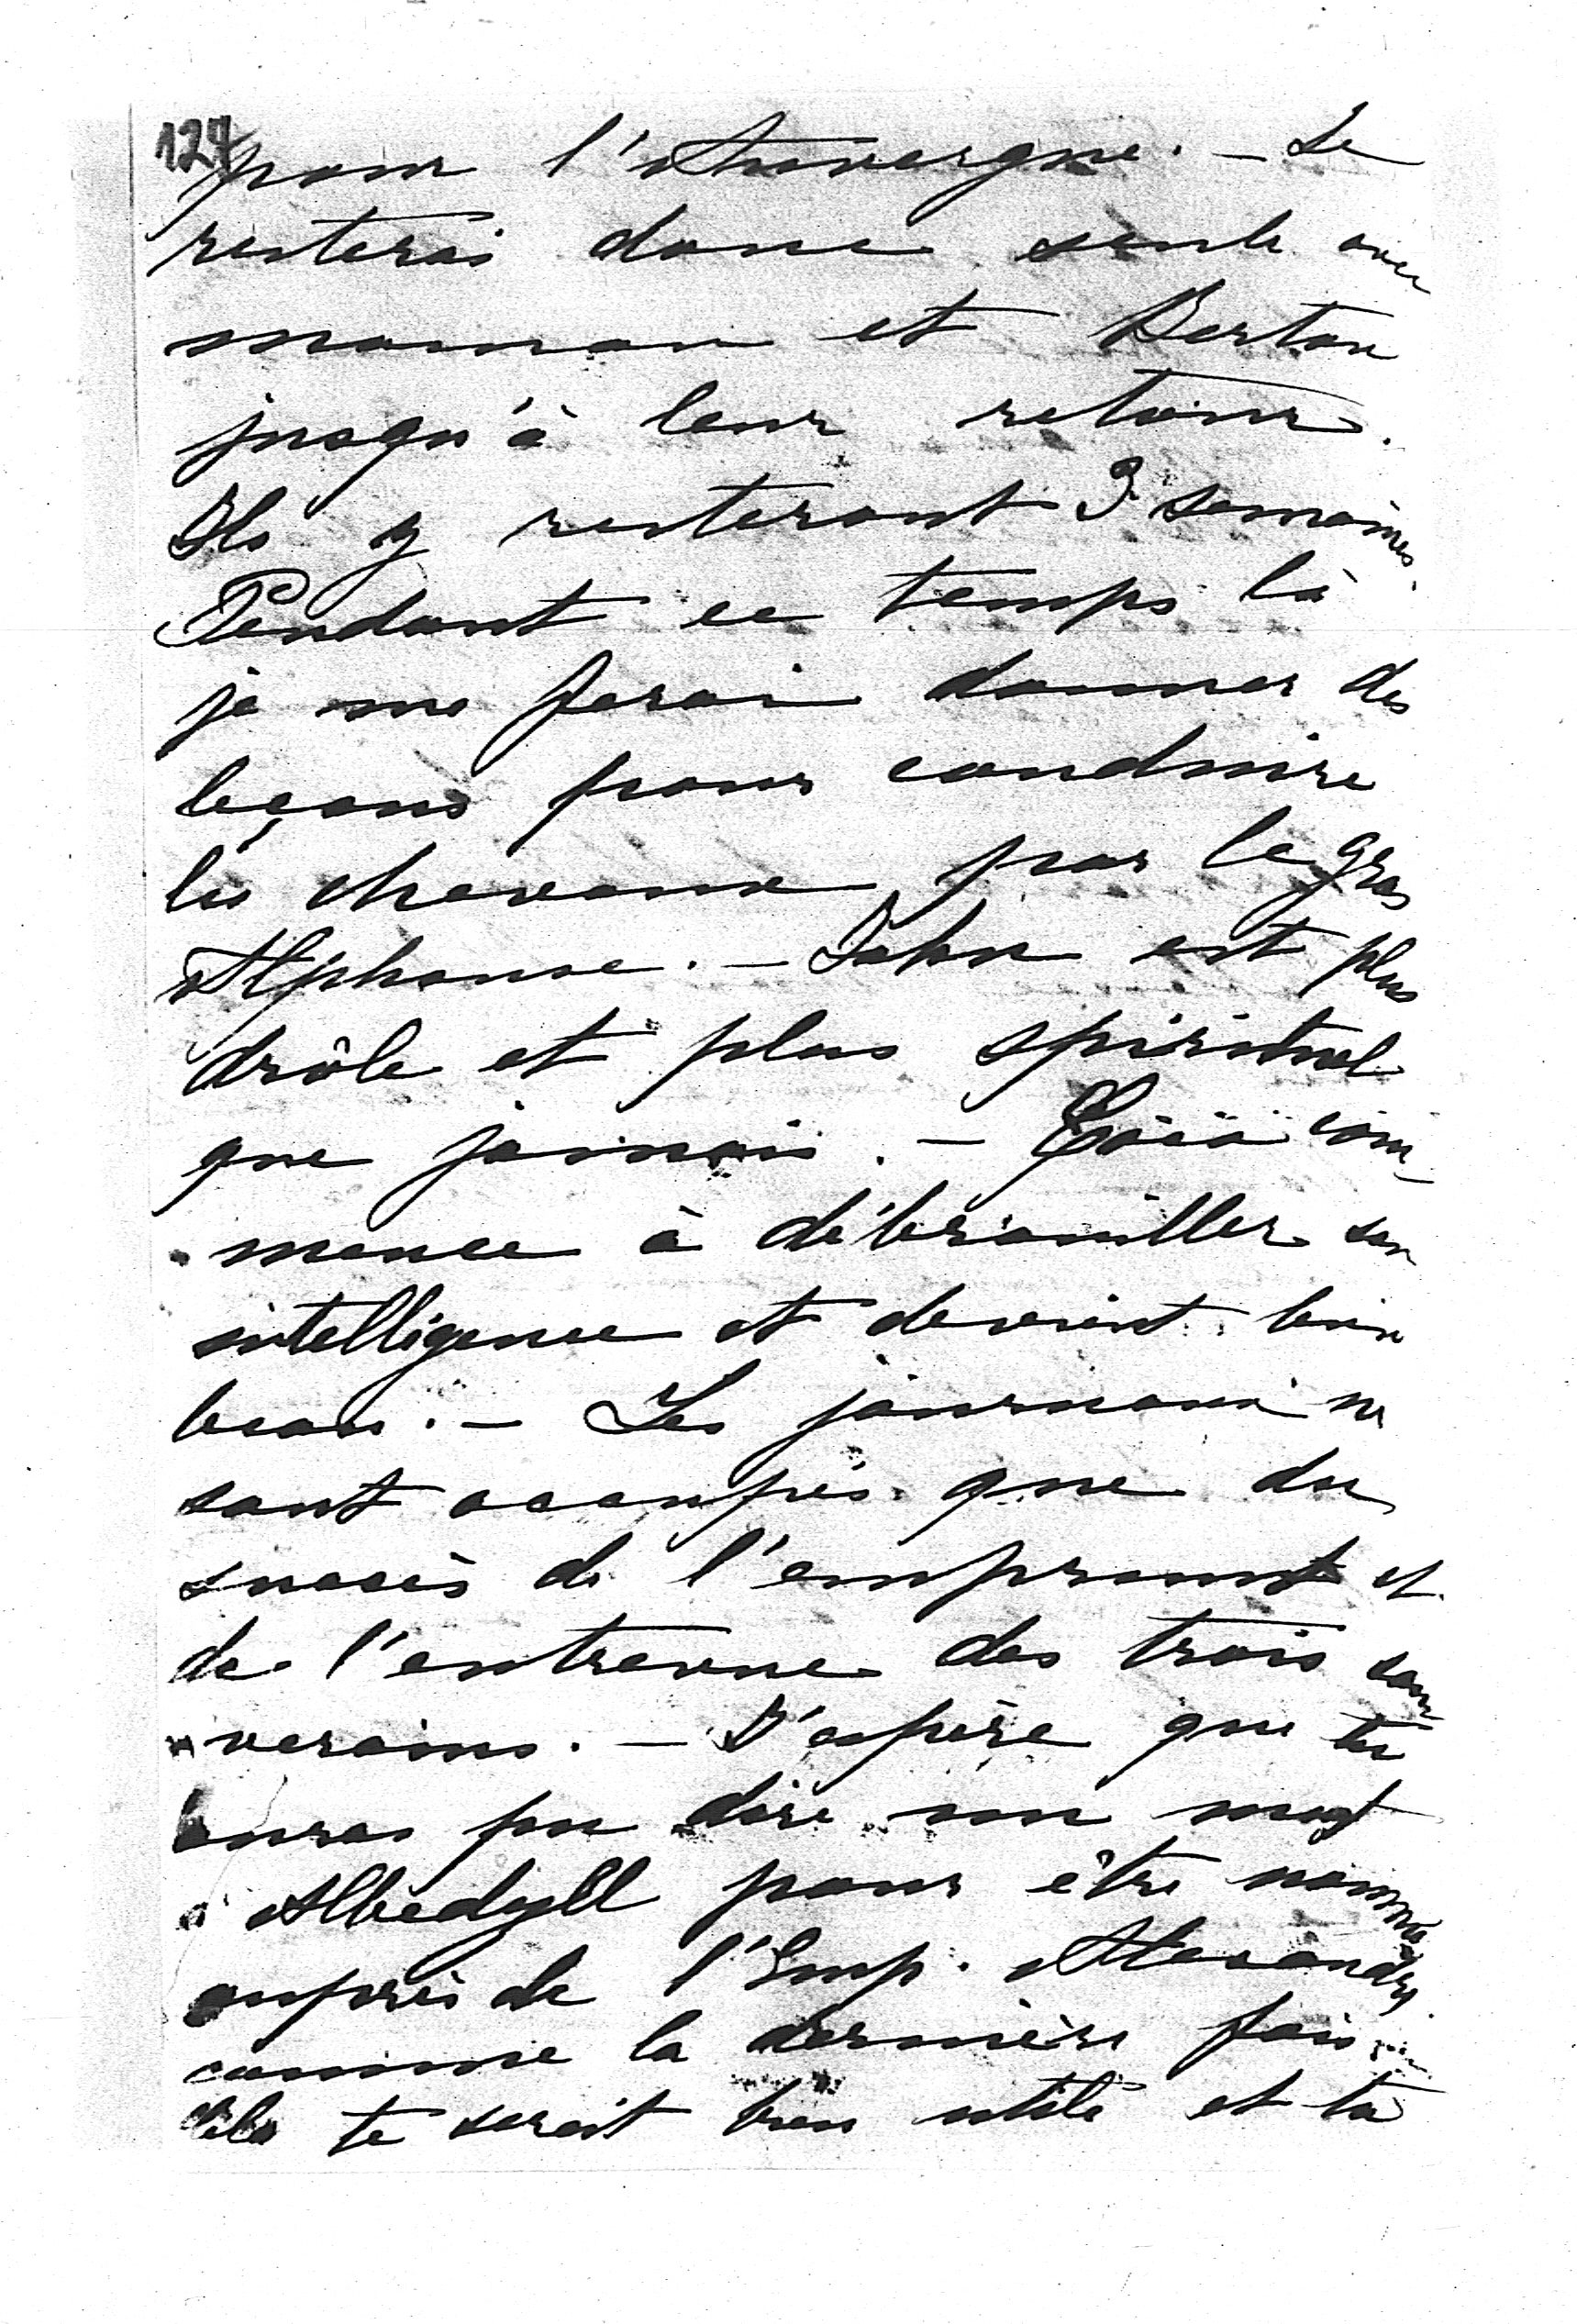 127
pour l'Auvergne. – Je
resterai donc seule avec
maman et Berton
jusqu'à leur retour.
Ils y resteront 3 semaines.
Pendant ce temps là
je me ferai donner des
leçons pour conduire
les chevaux par le gros
Alphonse. – John est plus
drôle et plus spirituel
que jamais. – com
mence à débrouiller son
intelligence et devient bien
beau. – Les journaux ne
sont occupés que du
succès de l'emprunt et
de l'entrevue des trois sou
verains. – J'espère que tu
auras pu dire un mot
à Albedyll pour être nommé
auprès de l'Emp. Alexandre
comme la dernière fois
cela te serait bien utile et ta